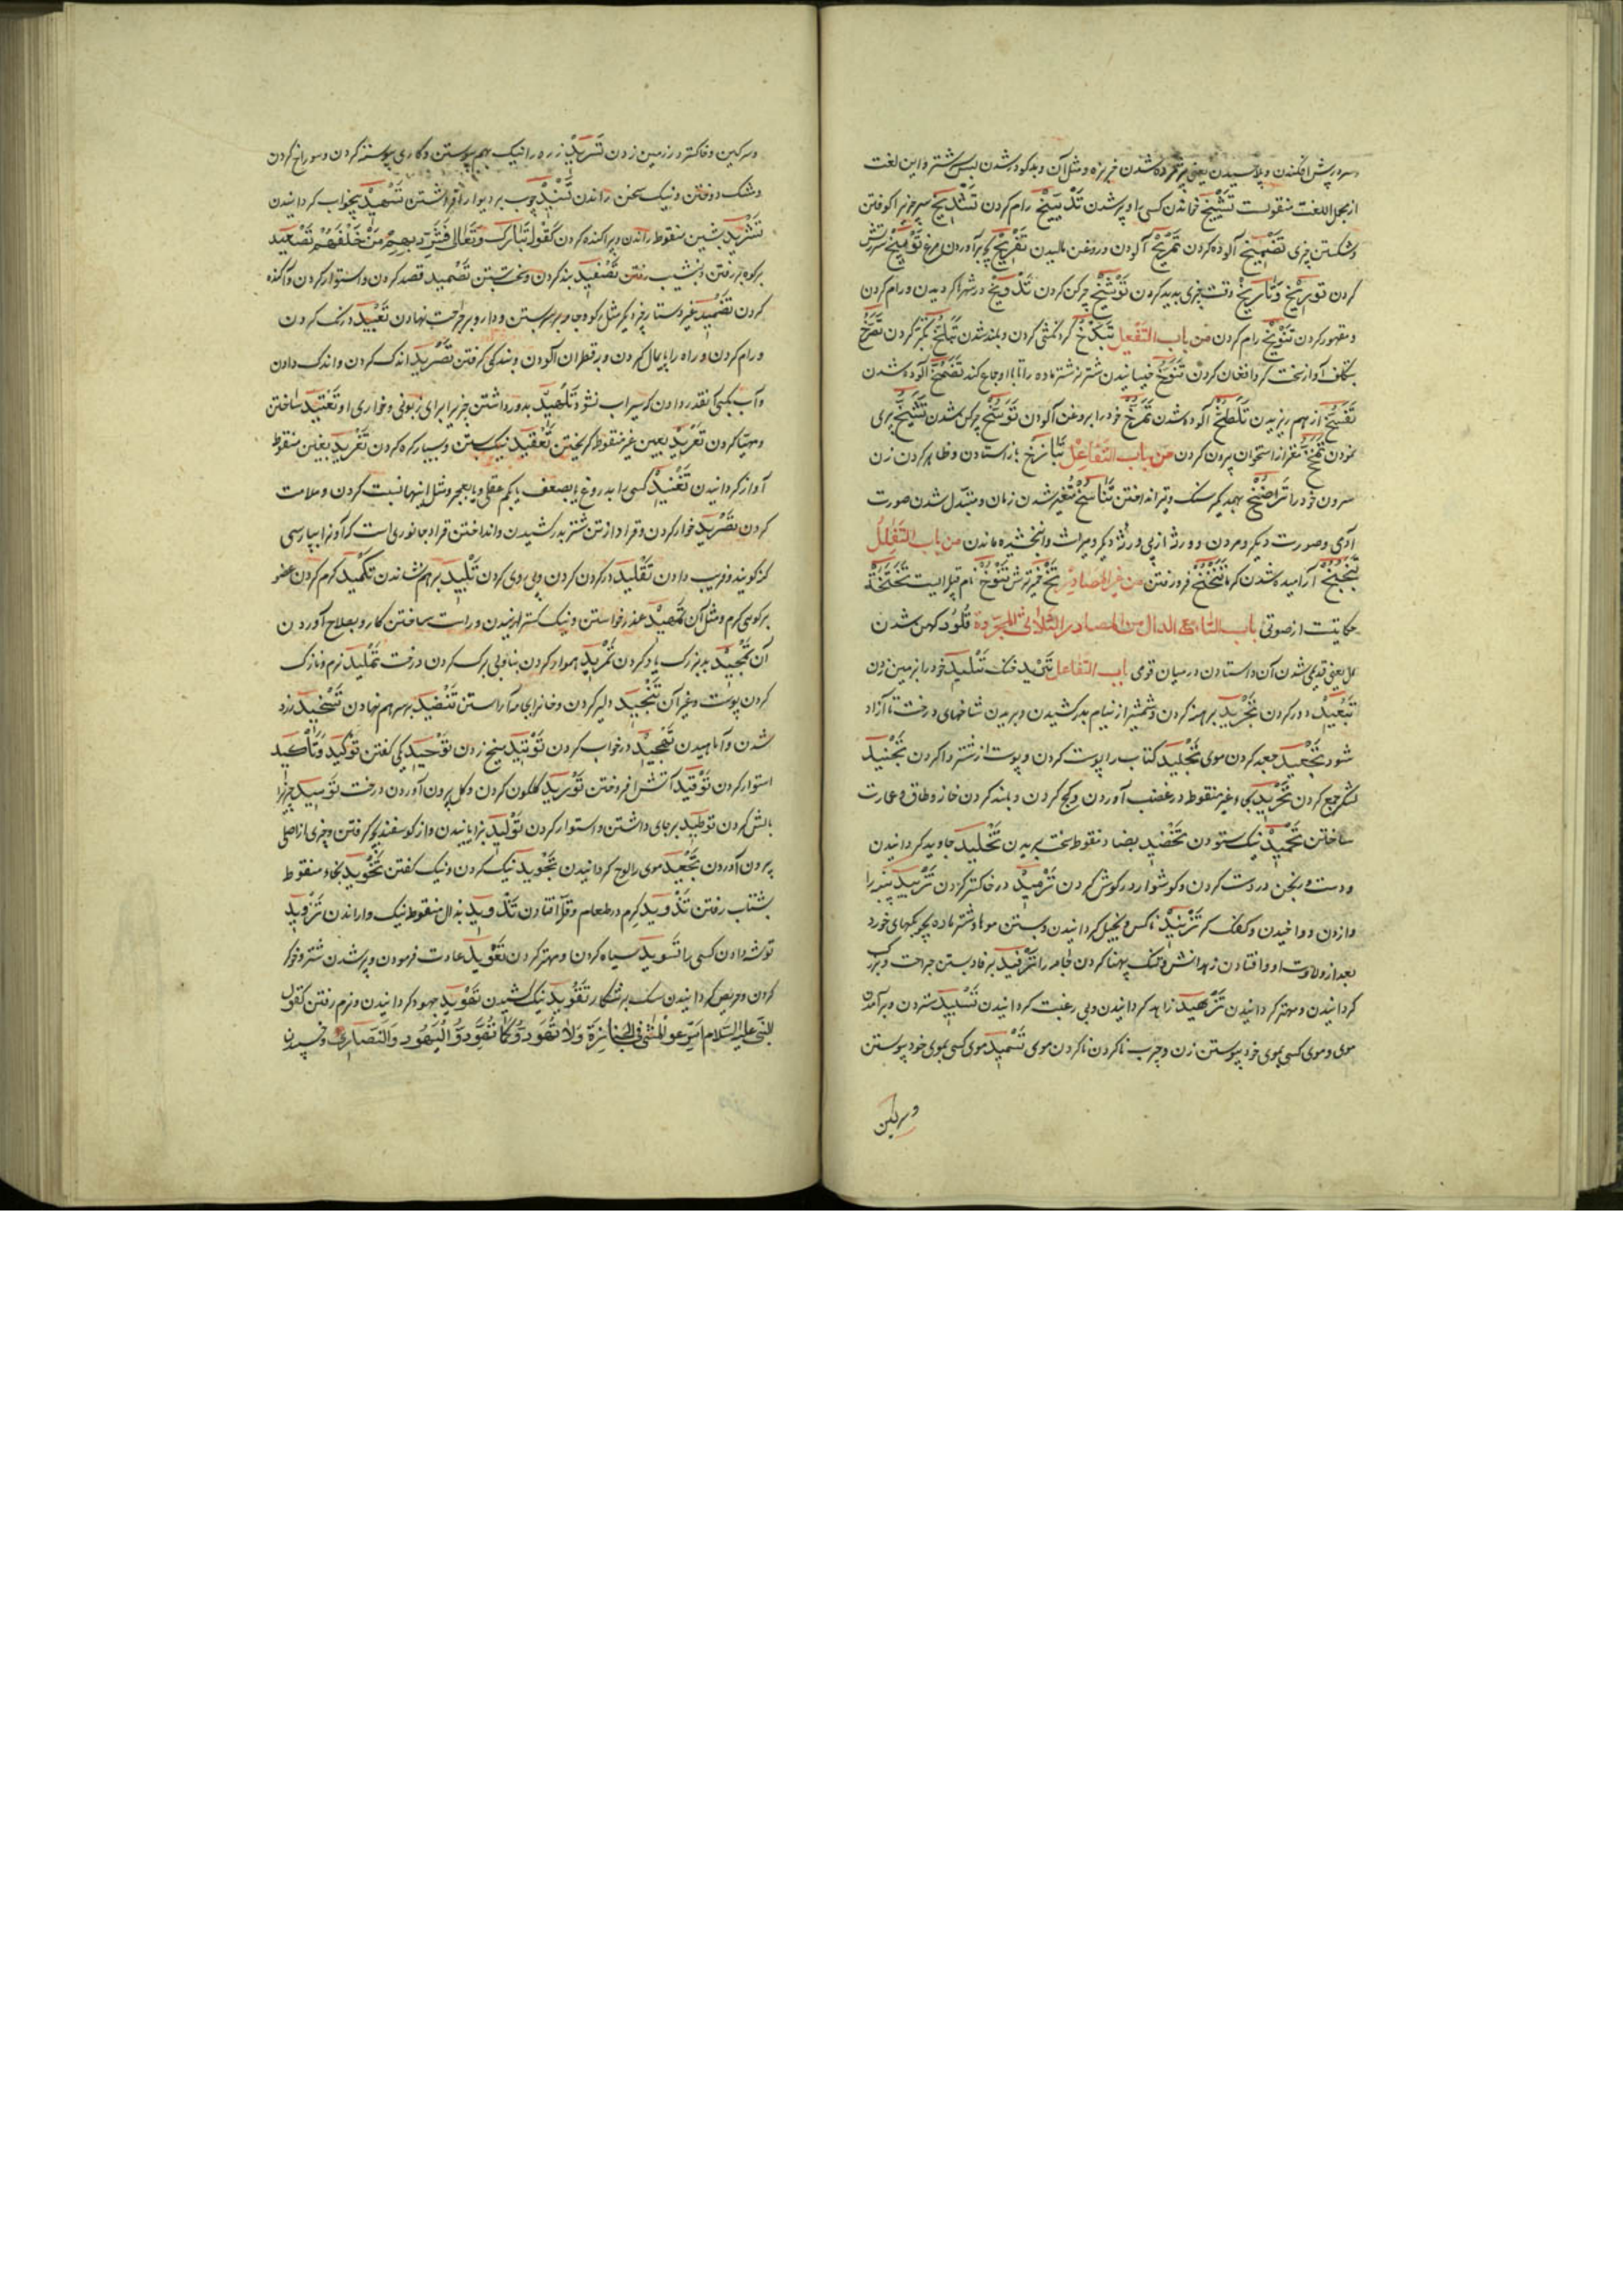 و سرپیش افکندن و پلاسیدن یعنی پژمرده شدن خربزه و مثل آن و بدکوردشدن شتر و این لغت
از مجمل اللغت منقولست تشییخ خواندن کسی را و پیر شدن تدییخ رام کردن تشدیخ سر چیزی را کوفتن
و شکستن چیزی تضمیخ آلوده کردن تمریخ آلودن و روغن مالیدن تفریخ بچه برآوردن مرغ توبیخ سرزنش
کردن توریخ و تاریخ وقت چیزی پدید کردن توسیخ چرکن کردن تدویخ در شهرها کردیدن و رام کردن
و مقهور کردن تنویخ رام کردن من باب التفعل تبذخ کردنکشی کردن و بلند شدن تبلخ تکبر کردن تصرخ
بتکلف آواز سخت کردن و افغان کردن تنوخ خسپانیدن شتر نر شتر ماده را تا با او جماع کند تضمخ آلوده شدن
تفسخ از هم ریزیدن تلطخ آلوده شدن تمرخ خود را بروغن آلودن توسخ چرکن شدن تشیخ پیری
نمودن تمخخ مغز از استخوان بیرون کردن من باب التفاعل تبازخ باز استادن و ظاهر کردن زن
سرون خود را تراضخ بهمدیگر سنگ و تیر انداختن تناسخ متغیر شدن زمان و متبدل شدن صورت
آدمی و صورت دیگر و مردن ورثه از پی ورثه دیگر و میراث وانبخشیده ماندن من باب التفعلل
تبخبخ آرمیده شدن کرما تنخنخ فرو رفتن من غیر المصادر تخ خمیر ترش تنوخ نام قبیله ایست تختخة
حکایتست از صوتی باب التاء مع الدال من المصادر الثلاثی المجردة تلود کهن شدن
مال یعنی قدیمی شدن آن و استادن در میان قومی باب التفاعل تبرید خنک تبلید خود را بر زمین زدن
تبعید دور کردن تجرید برهنه کردن و شمشیر از نیام بدر کشیدن و بریدن شاخهای درخت تا آزاد
شود تجعید جعد کردن موی تجلید کتاب را پوست کردن و پوست از شتر وا کردن تجنید
لشکر جمع کردن تحرید بحاء غیر منقوط در غضب آوردن و کج کردن و بلند کردن خانه و طاق و عمارت
ساختن تحمید نیک ستودن تخضید بضاد منقوط سخت بریدن تخلید جاوید کردانیدن
و دست و رنجن در دست کردن و کوشوار در کوش کردن ترمید در خاکستر کردن تزبید پنبه را
وازدن و واخیدن و کفک کردن تزنید ناکس و بخیل کردانیدن و بستن موها و شتر ماده بچوبکهای خورد
بعد از ولادت او و افتادن زهدانش و تنک پهنا کردن جامه را ترفید برفاده بستن جراحت و بزرک
کردانیدن و مهتر کردانیدن تزهید زاهد کردانیدن و بی رغبت کردانیدن تسبید ستردن و برآمدن
موی و موی کسی بموی خود پیوستن زن و چرب ناکردن موی تسمید موی کسی بموی خود پیوستن
و سرکین
و سرکین و خاکستر در زمین زدن تسرید زره را نیک بهم پیوستن و کاری پیوسته کردن و سوراخ کردن
و مشک دوختن و نیک سخن راندن تسنید چوب بر دیوار افراشتن تسهید بیخواب کردانیدن
تشرید بشین منقوط راندن و پراکنده کردن کقوله تبارک و تعالی فشرد بهم من خلفهم تصعید
بر کوه بر رفتن و بنشیب رفتن تصفید بند کردن و سخت بستن تصمید قصد کردن و استوار کردن و آکنده
کردن تضمید بستن و دارو بر جراحت نهادن تعبید درنک کردن
و رام کردن و راه را پایمال کردن و بقطران آلودن و بندکی گرفتن تصرید اندک کردن و اندک دادن
و آب بکسی آنقدر دادن که سیراب نشود تلهید بدور داشتن چیزی را برای زبونی و خواری او تعتید ساختن
و مهیا کردن تعرید بعین غیر منقوط گریختن تعقید نیک بستن و بسیار گره کردن تغرید بغین منقوط
آواز کردانیدن تفنید کسی را بدروغ یا بضعف یا بکم عقلی و یا بعجز و مثل اینها نسبت کردن و ملامت
کردن تقرید خوار کردن و قراد از تن شتر بدر کشیدن و انداختن قراد جانوری است که آنرا بپارسی
کنه کویند و فریب دادن تقلید در کردن کردن و پی روی کردن تلبید بر هم نشاندن تکمید کرم کردن عضو
بر کوی کرم و مثل آن تمهید عذر خواستن و نیک کسترانیدن و راست ساختن کار و بصلاح آوردن
آن تمجید ببزرکی یاد کردن تمرید هموار کردن بنا و بی برک کردن درخت تملید نرم و نازک
کردن پوست و غیر آن تنجید دلیر کردن و خانه را بجامه آراستن تنضید بر سر هم نهادن تسخید زرد
شدن و آماهیدن تهجید در خواب کردن توتید میخ زدن توحید یکی گفتن توکید و تأکید
استوار کردن توقید آتش افروختن تورید گلگون کردن و گل بیرون آوردن درخت توسید چیزی را
بالش کردن توطید بر جای داشتن و استوار کردن تولید زایانیدن و از کوسفند بچه گرفتن و چیزی از اصلی
بیرون آوردن تجعید موی را لوح کردانیدن تجوید نیک کردن و نیک گفتن تخوید بخاء منقوط
بشتاب رفتن تدوید کرم در طعام و غله افتادن تذوید بذال منقوط نیک واراندن تزوید
توشه دادن کسی را تسوید سیاه کردن و مهتر کردن تعوید عادت فرمودن و پیر شدن شتر و خوکر
کردن و حریص کردانیدن سک بر شکار تقوید نیک کشیدن تهوید جهود کردانیدن و نرم رفتن کقول
النبی علیه السلام اسرعوا المشی فی الجنازة و لا تهودوا کما تهود الیهود و النصاری و خسپیدن